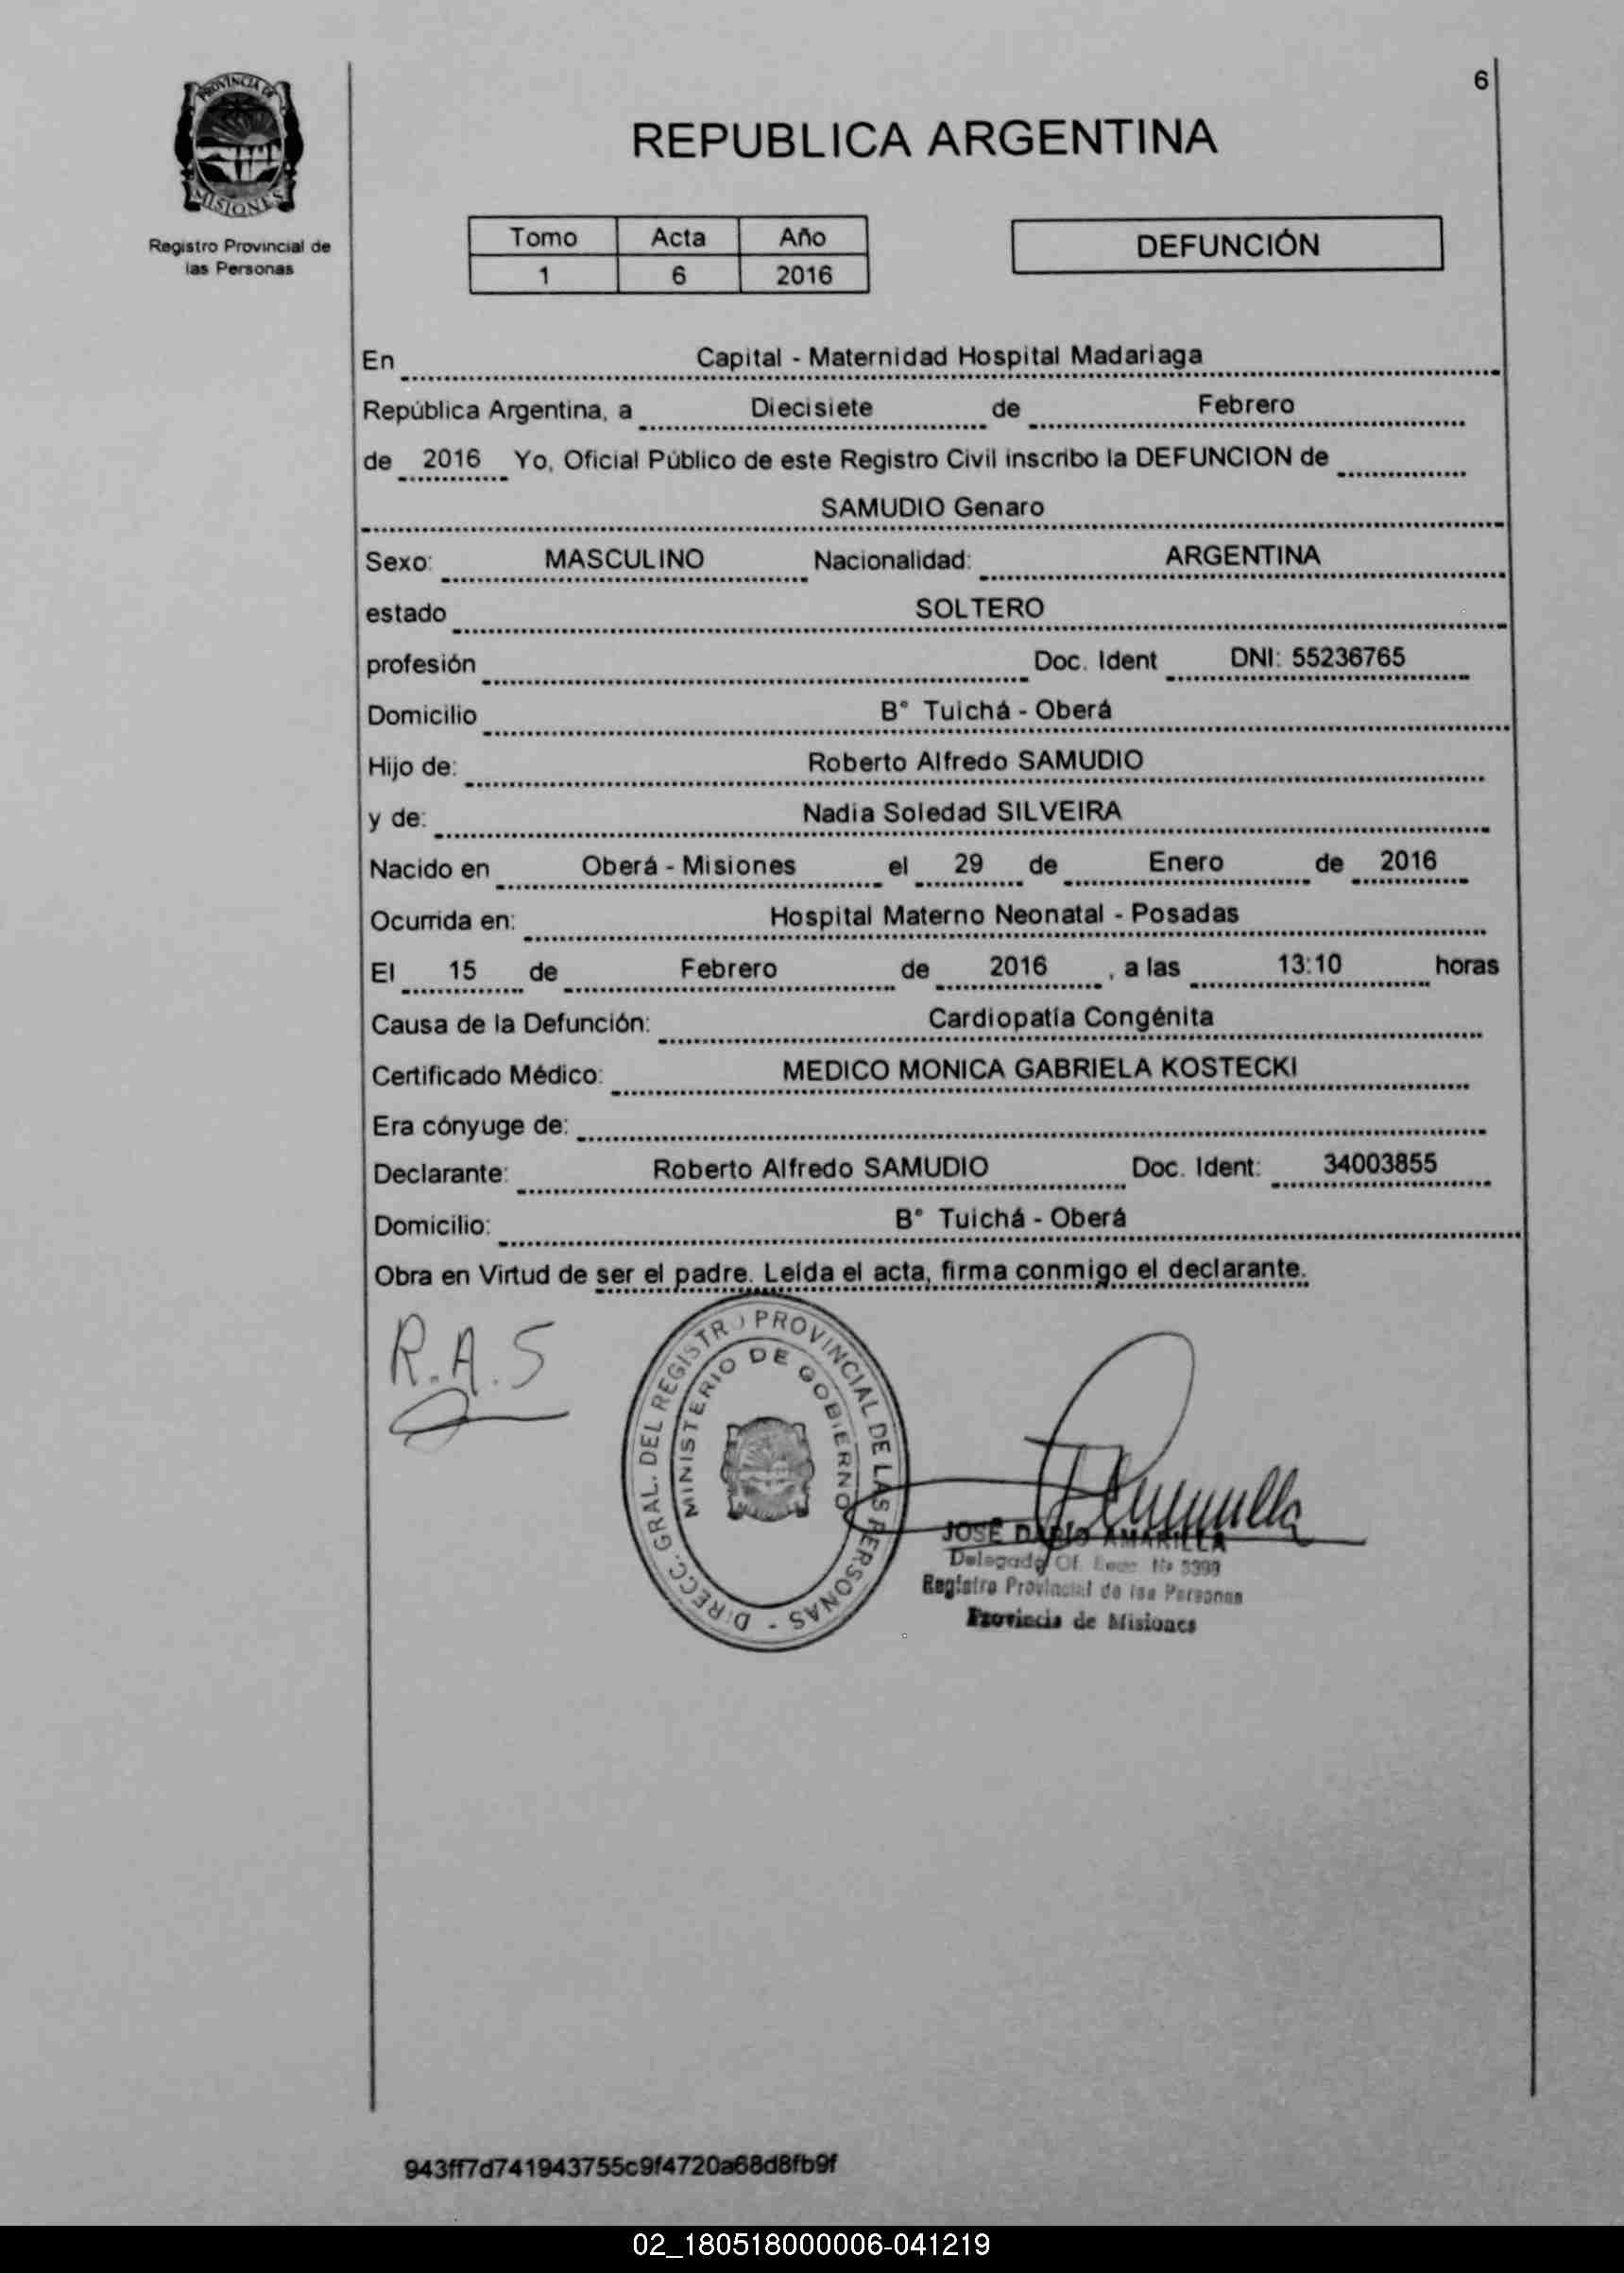 6
PROVINCIA DE
MISIONES
Registro Provincial de
las Personas
REPUBLICA ARGENTINA
Tomo Acta Año
1 6 2016
DEFUNCIÓN
En Capital - Maternidad Hospital Madariaga
República Argentina, a Diecisiete de Febrero
de 2016 Yo, Oficial Público de este Registro Civil inscribo la DEFUNCION de
SAMUDIO Genaro
Sexo: MASCULINO Nacionalidad: ARGENTINA
estado SOLTERO
profesión Doc. Ident DNI: 55236765
Domicilio B° Tuichá - Oberá
Hijo de: Roberto Alfredo SAMUDIO
y de: Nadia Soledad SILVEIRA
Nacido en Oberá - Misiones el 29 de Enero de 2016
Ocurrida en: Hospital Materno Neonatal - Posadas
El 15 de Febrero de 2016 , a las 13:10 horas
Causa de la Defunción: Cardiopatía Congénita
Certificado Médico: MEDICO MONICA GABRIELA KOSTECKI
Era cónyuge de:
Declarante: Roberto Alfredo SAMUDIO Doc. Ident: 34003855
Domicilio: B° Tuichá - Oberá
Obra en Virtud de ser el padre. Leída el acta, firma conmigo el declarante.
R.A.S
DIRECC. GRAL. DEL REGISTRO PROVINCIAL DE LAS PERSONAS -
MINISTERIO DE GOBIERNO
JOSE DARIO AMARILLA
Delegado Of. Nº
Registro Provincial de las Personas
Provincia de Misiones
943ff7d741943755c9f4720a68d8fb9f
02_180518000006-041219